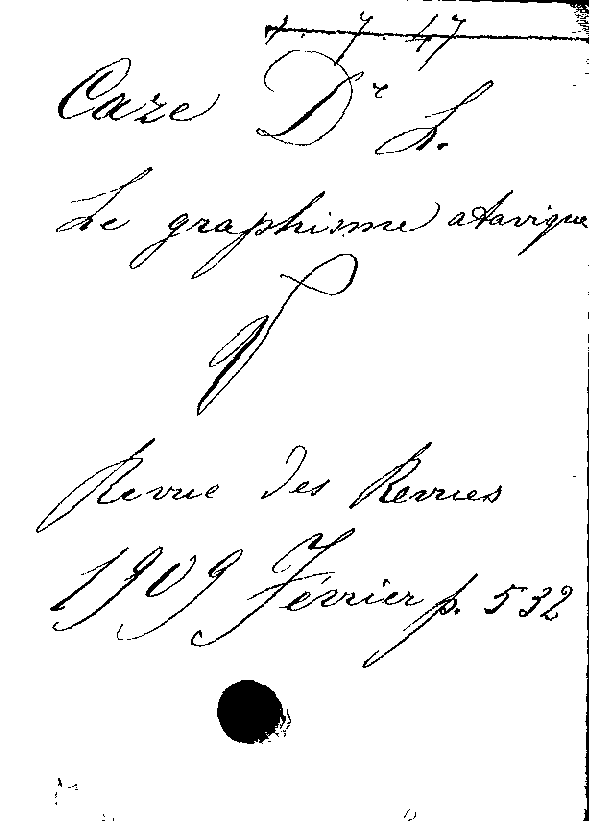 1. 7. 47
Caze Dr L.
Le graphisme atavique
Revue des Revues
1909 Février p. 532